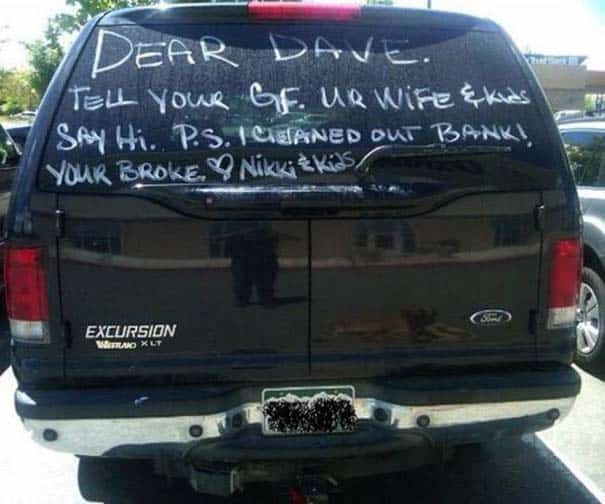 DEAR DAVE.
TELL YOUR GF. UR WIFE & kids
SAY Hi.. P.S. I CLEANED OUT BANK!
YOUR BROKE. ♡ Nikki & Kids
EXCURSION
XLT
Ford